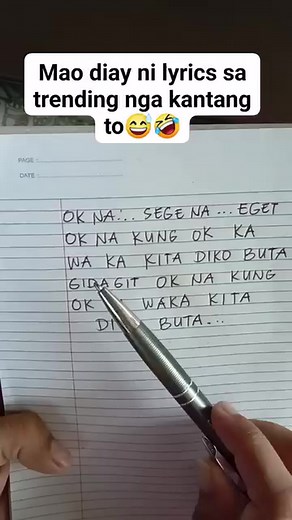 Mao diay ni lyrics sa
trending nga kantang
to😅🤣
PAGE :
DATE :
OK NA... SEGE NA ... EGET
OK NA KUNG OK KA
WA KA KITA DIKO BUTA
GIDAGIT OK NA KUNG
OK WAKA KITA
BUTA...